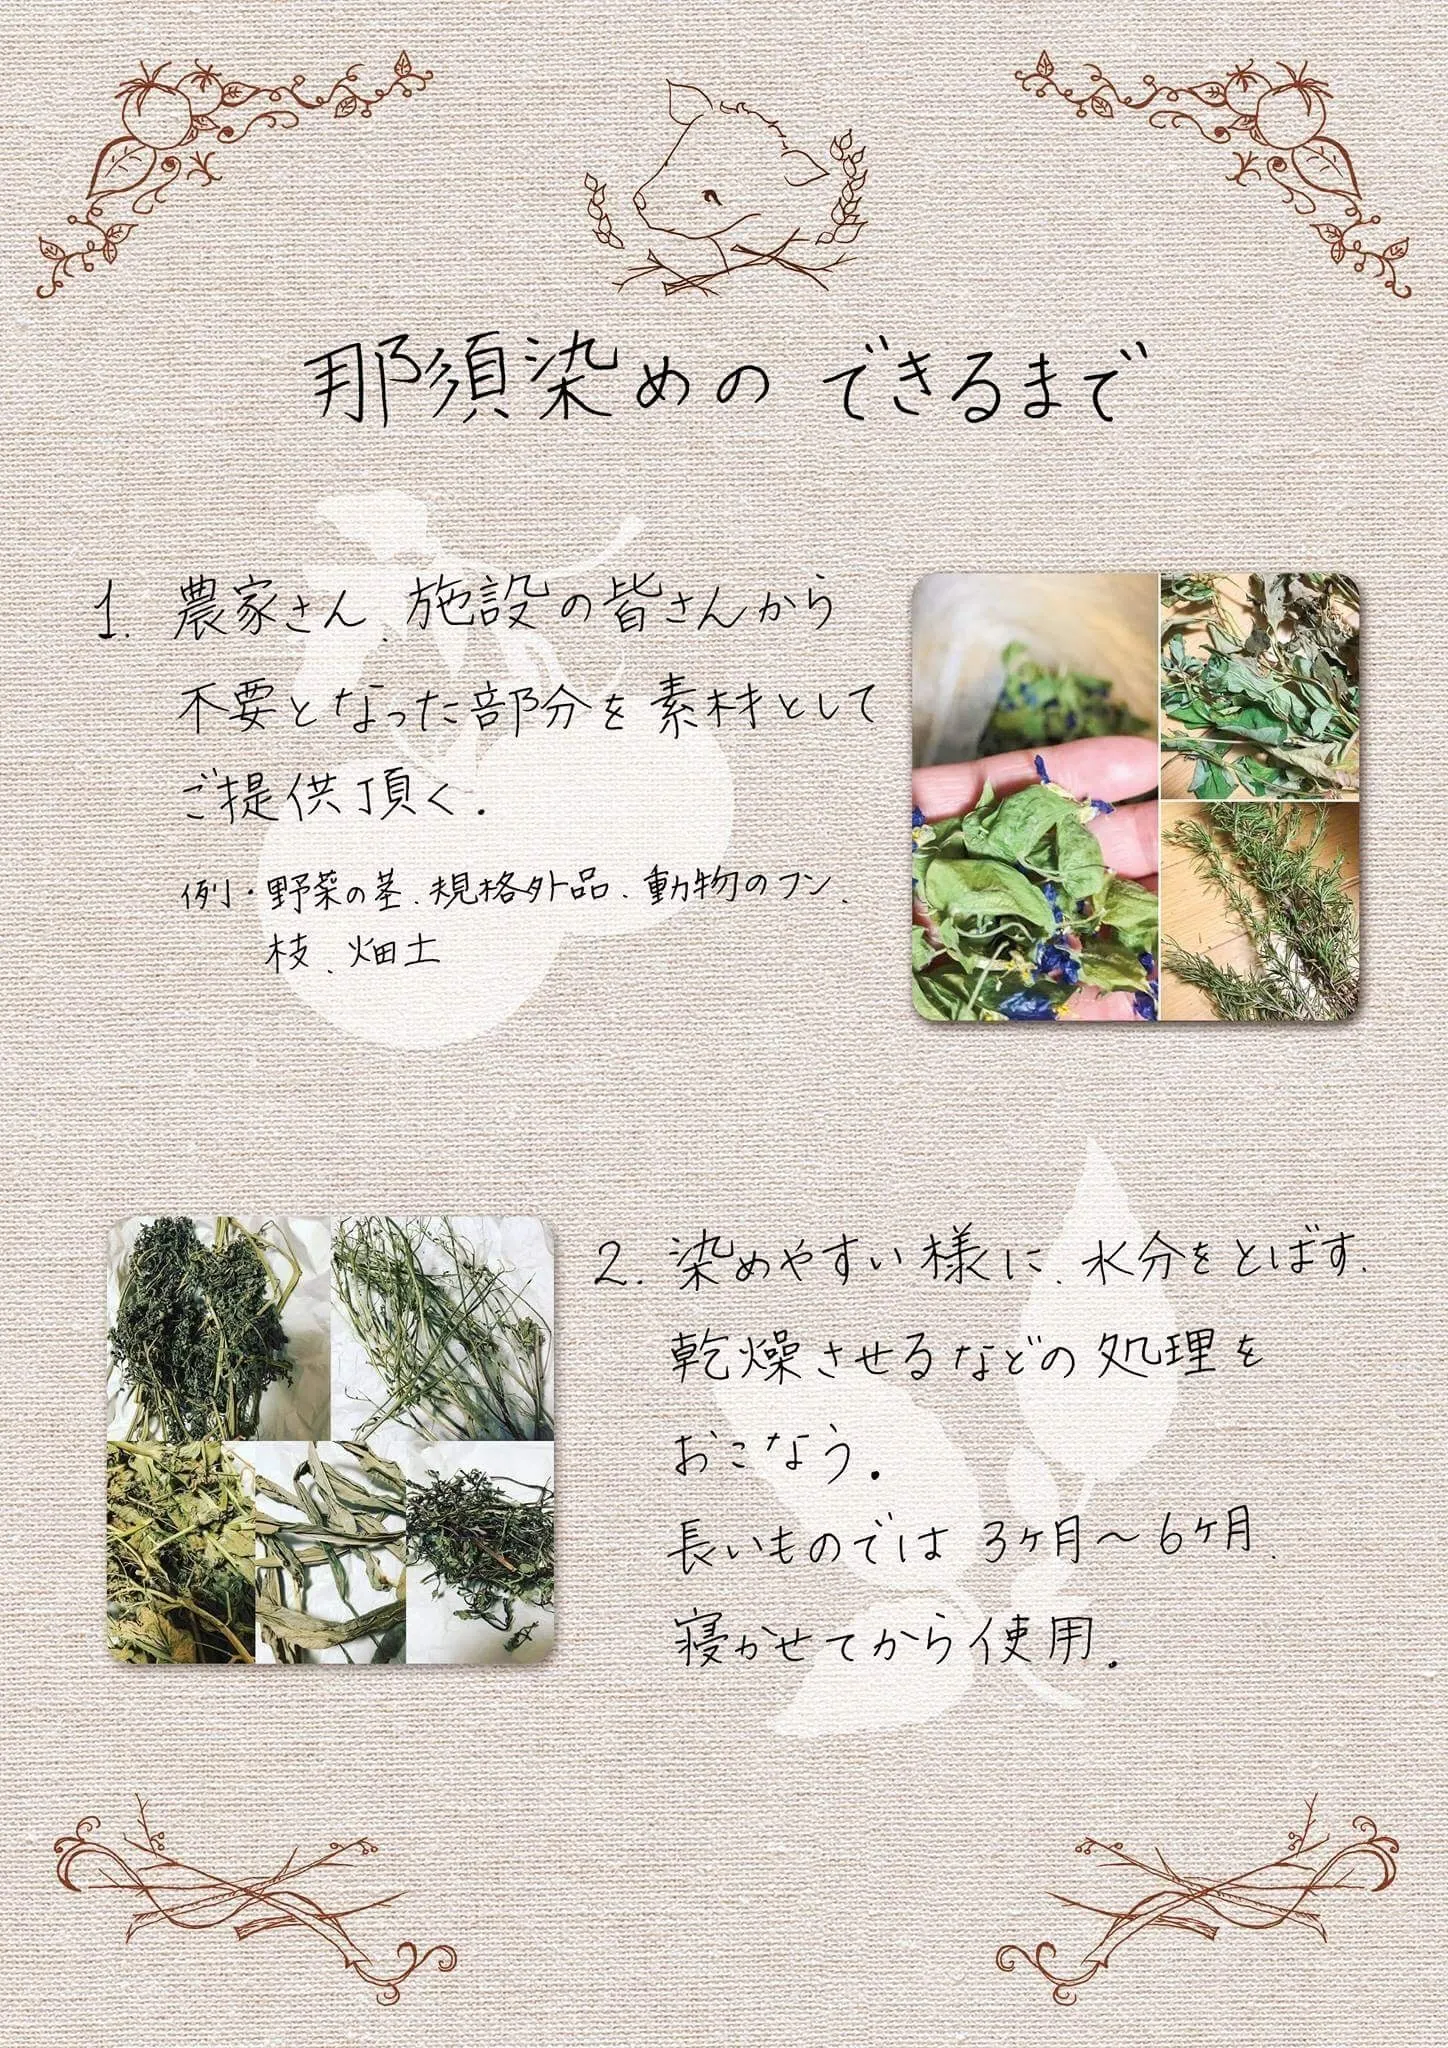 那須染めのできるまで
1. 農家さん、施設の皆さんから
不要となった部分を素材として
ご提供頂く。
例・野菜の茎、規格外品、動物のフン、
枝、畑土
2. 染めやすい様に、水分をとばす、
乾燥させるなどの処理を
おこなう。
長いものでは3ヶ月〜6ヶ月、
寝かせてから使用。